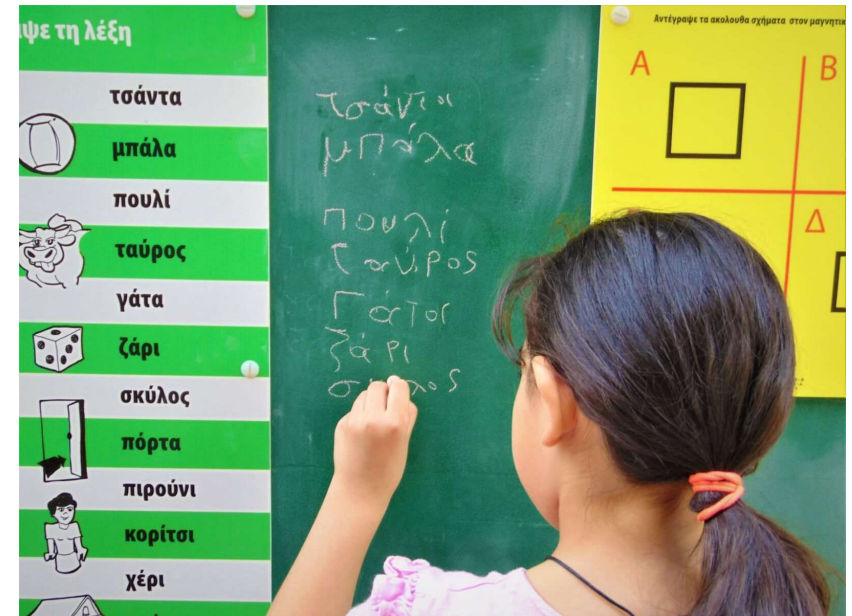 ψε τη λέξη
τσάντα
μπάλα
πουλί
ταύρος
γάτα
ζάρι
σκύλος
πόρτα
πιρούνι
κορίτσι
χέρι
τσάντα
μπάλα
πουλί
ταύρος
Γάτα
ζάρι
Αντέγραψε τα ακολουθα σχήματα στον μαγνητικ
Α
Β
Δ